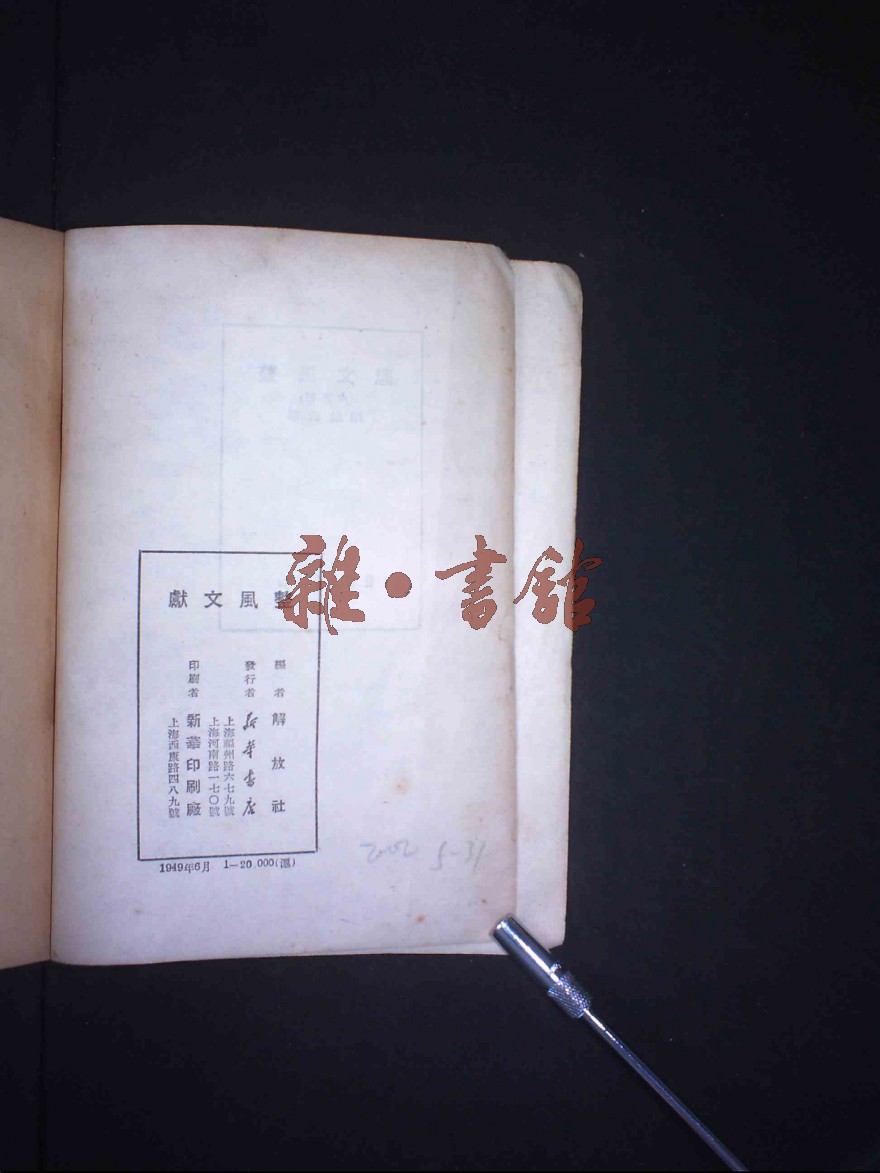 整風文獻
編者 解放社
發行者 新華書店
上海福州路六七九號
上海河南路一七〇號
印刷者 新華印刷廠
上海西康路四八九號
1949年6月 1—20,000(滬)
2002 5-31
雜·書館